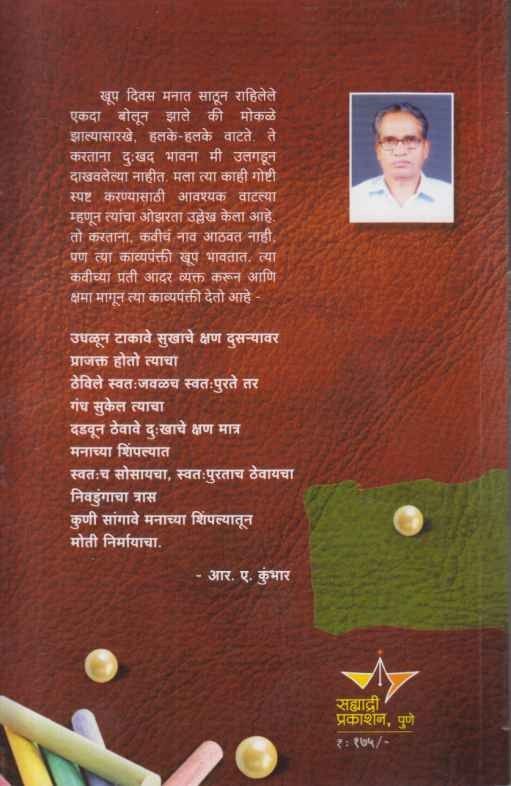 खूप दिवस मनात साठून राहिलेले
एकदा बोलून झाले की मोकळे
झाल्यासारखे, हलके-हलके वाटते. ते
करताना दुःखद भावना मी उलगडून
दाखवलेल्या नाहीत. मला त्या काही गोष्टी
स्पष्ट करण्यासाठी आवश्यक वाटल्या
म्हणून त्यांचा ओझरता उल्लेख केला आहे.
तो करताना, कवीचं नाव आठवत नाही,
पण त्या काव्यपंक्ती खूप भावतात. त्या
कवीच्या प्रती आदर व्यक्त करून आणि
क्षमा मागून त्या काव्यपंक्ती देतो आहे -
उधळून टाकावे सुखाचे क्षण दुसऱ्यावर
प्राजक्त होतो त्याचा
ठेविले स्वतःजवळच स्वतःपुरते तर
गंध सुकेल त्याचा
दडवून ठेवावे दुःखाचे क्षण मात्र
मनाच्या शिंपल्यात
स्वतःच सोसायचा, स्वतःपुरताच ठेवायचा
निवडुंगाचा त्रास
कुणी सांगावे मनाच्या शिंपल्यातून
मोती निर्मायाचा.
- आर. ए. कुंभार
सह्याद्री
प्रकाशन, पुणे
रु: १७५/-